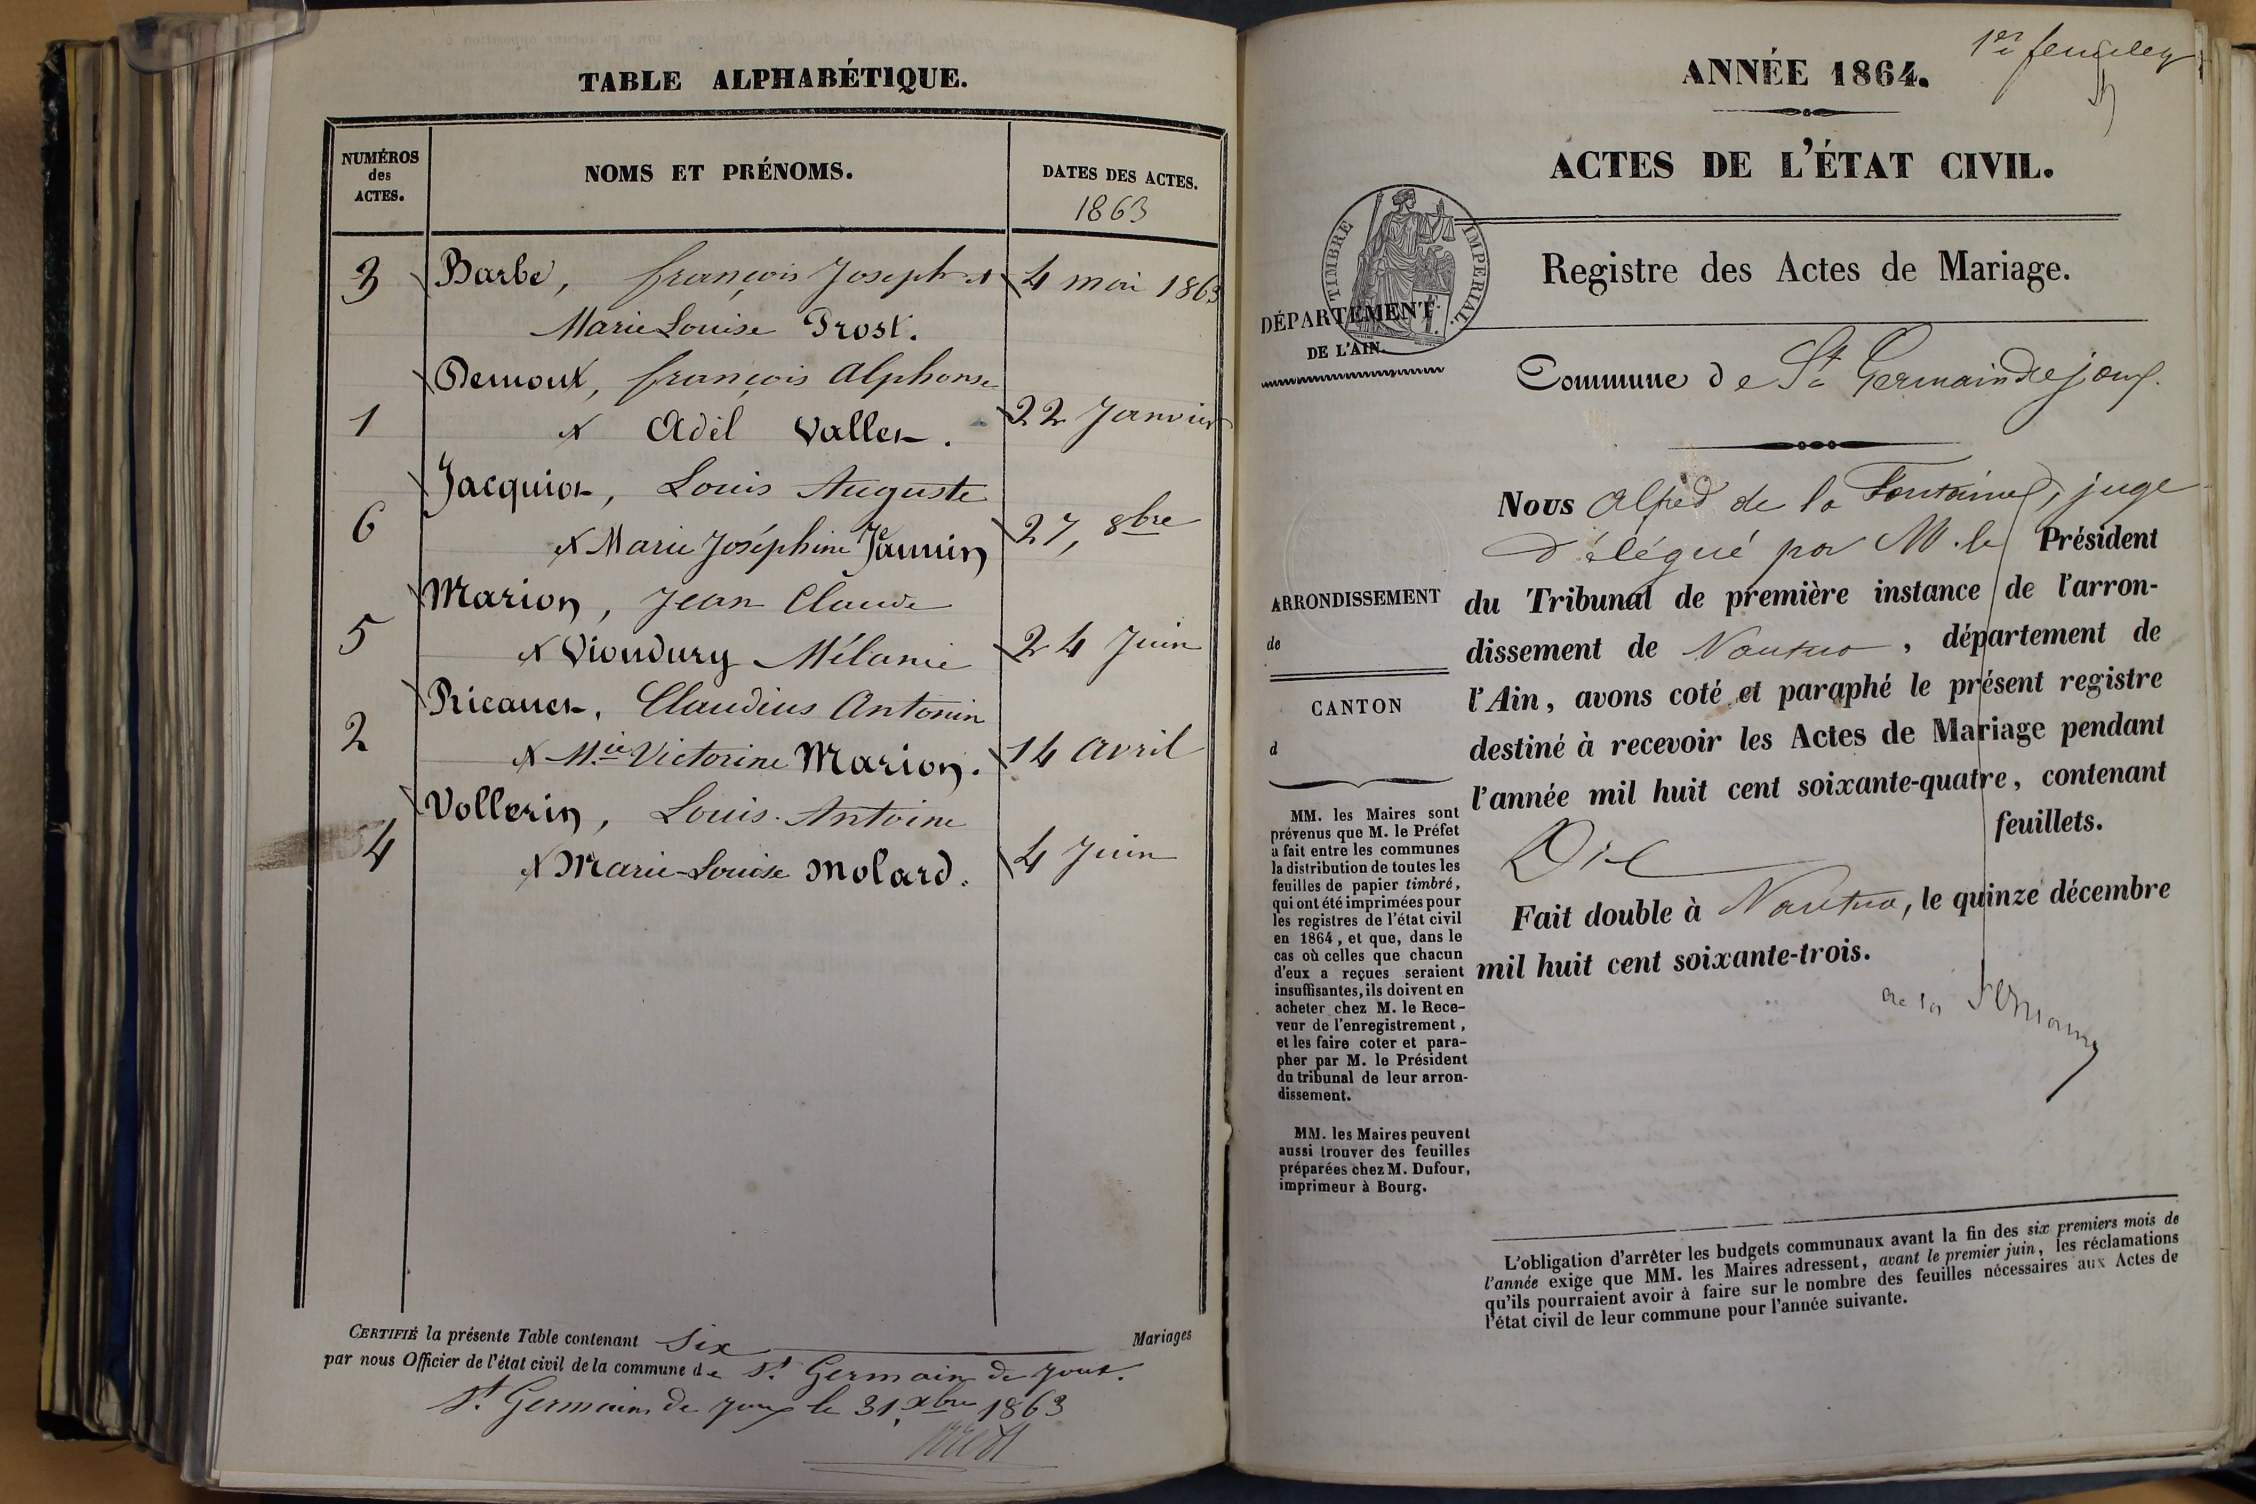 TABLE ALPHABÉTIQUE.
NUMÉROS
des
ACTES.
NOMS ET PRÉNOMS.
DATES DES ACTES.
1863
3 Barbe, françois Joseph et 4 mai 1863
Marie Louise Prost.
Demoux, françois Alphonse
1 et Adèl Vallet. 22 Janvier
Jacquiot, Louis Auguste
6 et Marie Joséphine Jannin 27, 8bre
Marion, Jean Claude
5 et Vioudury Mélanie 24 Juin
Claudius Antonin
2 et Mie Victorine Marion. 14 avril
Vollerin, Louis Antoine
4 et Marie-Louise Molard. 4 Juin
CERTIFIÉ la présente Table contenant six Mariages
par nous Officier de l'état civil de la commune de St Germain de Joux.
St Germain de Joux le 31, xbre 1863
1er feuillet
ANNÉE 1864.
ACTES DE L'ÉTAT CIVIL.
TIMBRE IMPÉRIAL.
Registre des Actes de Mariage.
DÉPARTEMENT
DE L'AIN.
Commune de St Germain de joux.
Nous Alfred de la Fontaine, juge
délégué par M. le Président
du Tribunal de première instance de l'arron-
dissement de Nantua, département de
l'Ain, avons coté et paraphé le présent registre
destiné à recevoir les Actes de Mariage pendant
l'année mil huit cent soixante-quatre, contenant
Dix feuillets.
Fait double à Nantua, le quinze décembre
mil huit cent soixante-trois.
ARRONDISSEMENT
de
CANTON
d
MM. les Maires sont
prévenus que M. le Préfet
a fait entre les communes
la distribution de toutes les
feuilles de papier timbré,
qui ont été imprimées pour
les registres de l'état civil
en 1864, et que, dans le
cas où celles que chacun
d'eux a reçues seraient
insuffisantes, ils doivent en
acheter chez M. le Rece-
veur de l'enregistrement,
et les faire coter et para-
pher par M. le Président
du tribunal de leur arron-
dissement.
MM. les Maires peuvent
aussi trouver des feuilles
préparées chez M. Dufour,
imprimeur à Bourg.
L'obligation d'arrêter les budgets communaux avant la fin des six premiers mois de
l'année exige que MM. les Maires adressent, avant le premier juin, les réclamations
qu'ils pourraient avoir à faire sur le nombre des feuilles nécessaires aux Actes de
l'état civil de leur commune pour l'année suivante.